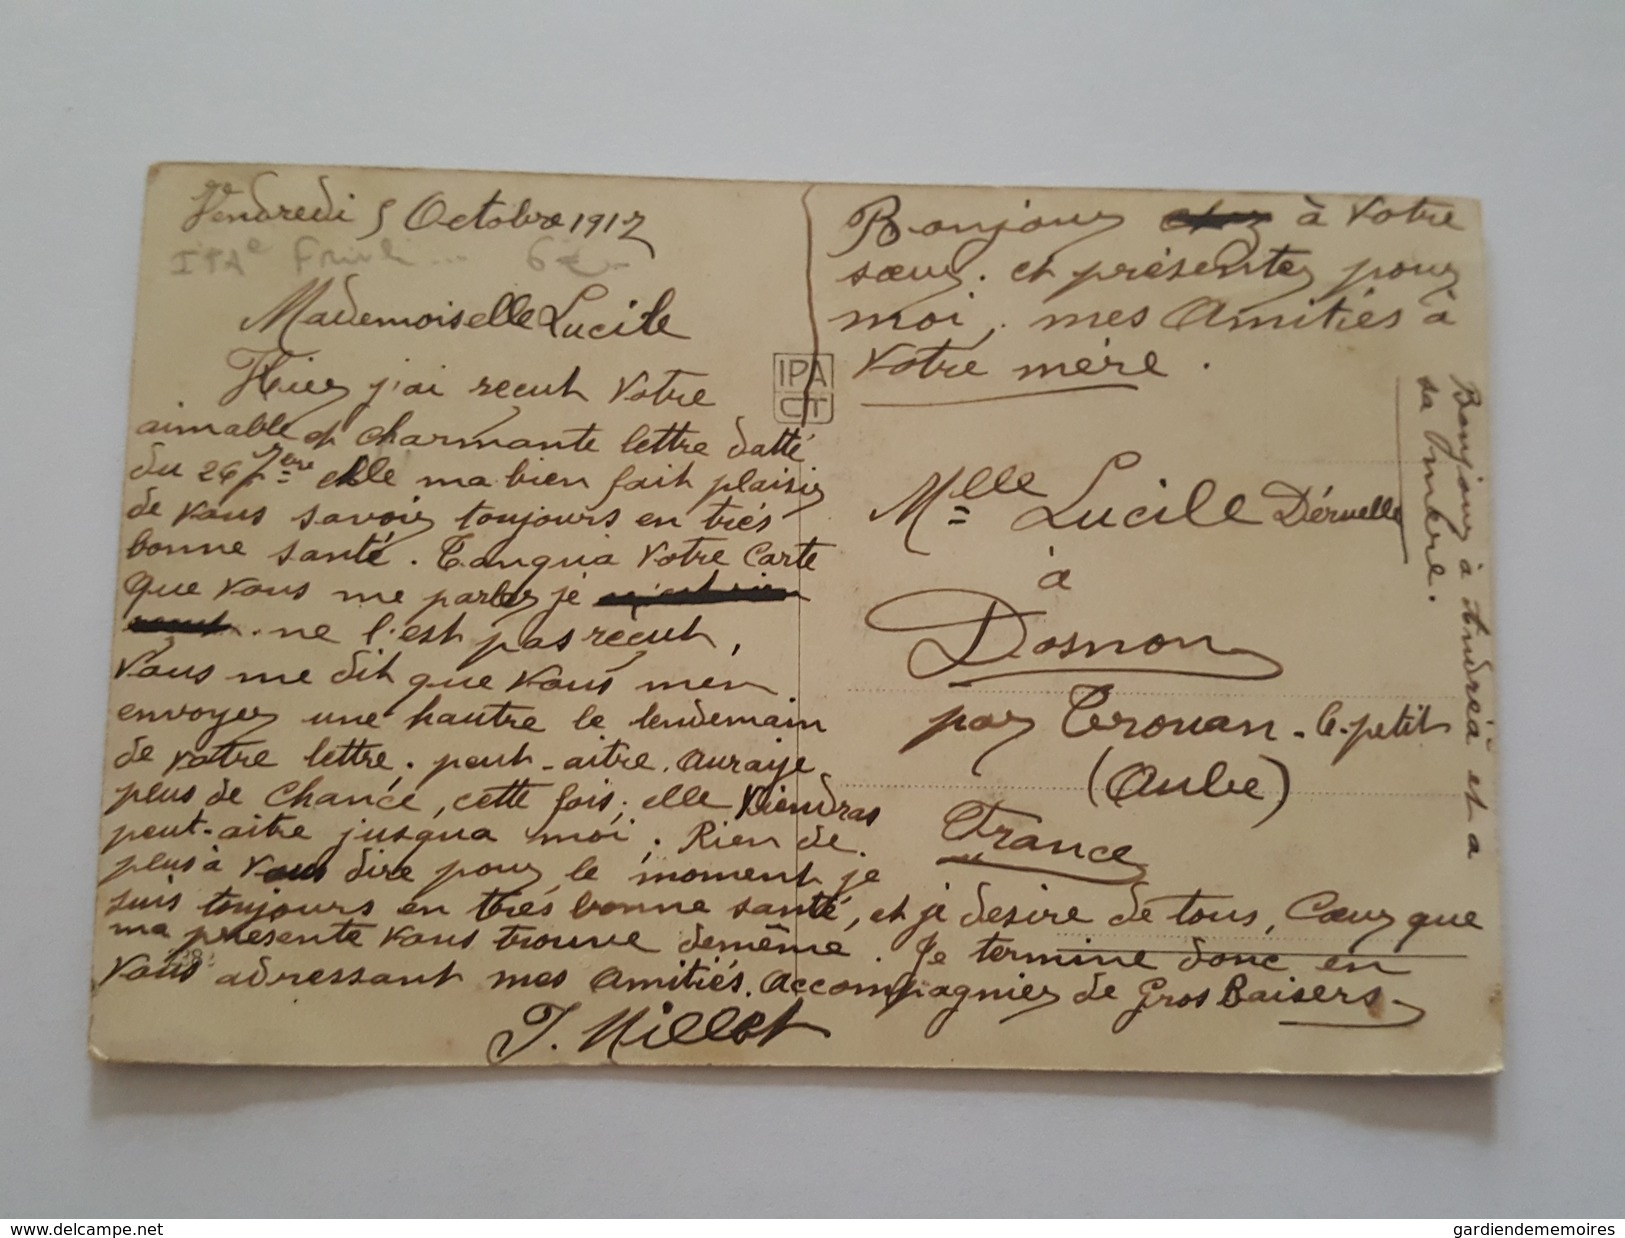 Vendredi 5 Octobre 1917
ITAe 6€
Mademoiselle Lucile
Hier j'ai recut Votre
aimable et charmante lettre datté
du 26 7bre elle ma bien fait plaisir
de vous savoir toujours en très
bonne santé. Tanqua Votre Carte
que vous me parlez je
ne l'est pas recut,
Vous me dit que vous men
envoyer une hautre le lendemain
de votre lettre, peut-aitre. auraije
plus de chance, cette fois, elle viendras
peut-aitre jusqua moi. Rien de
plus à vous dire pour le moment je
suis toujours en très bonne santé, et je desire de tous, Cœur que
ma présente vous trouve demême. Je termine donc en
vous adressant mes amitiés. accompagnier de Gros Baisers
J. Millot
Bonjour à votre
sœur. et présentez pour
moi, mes amitiés à
votre mère.
IPA
CT
Mlle Lucile Déruelle
à
Dosnon
par Trouan-le-petit
(Aube)
France
Bonjour à Andréa et a
sa
www.delcampe.net
gardiendememoires